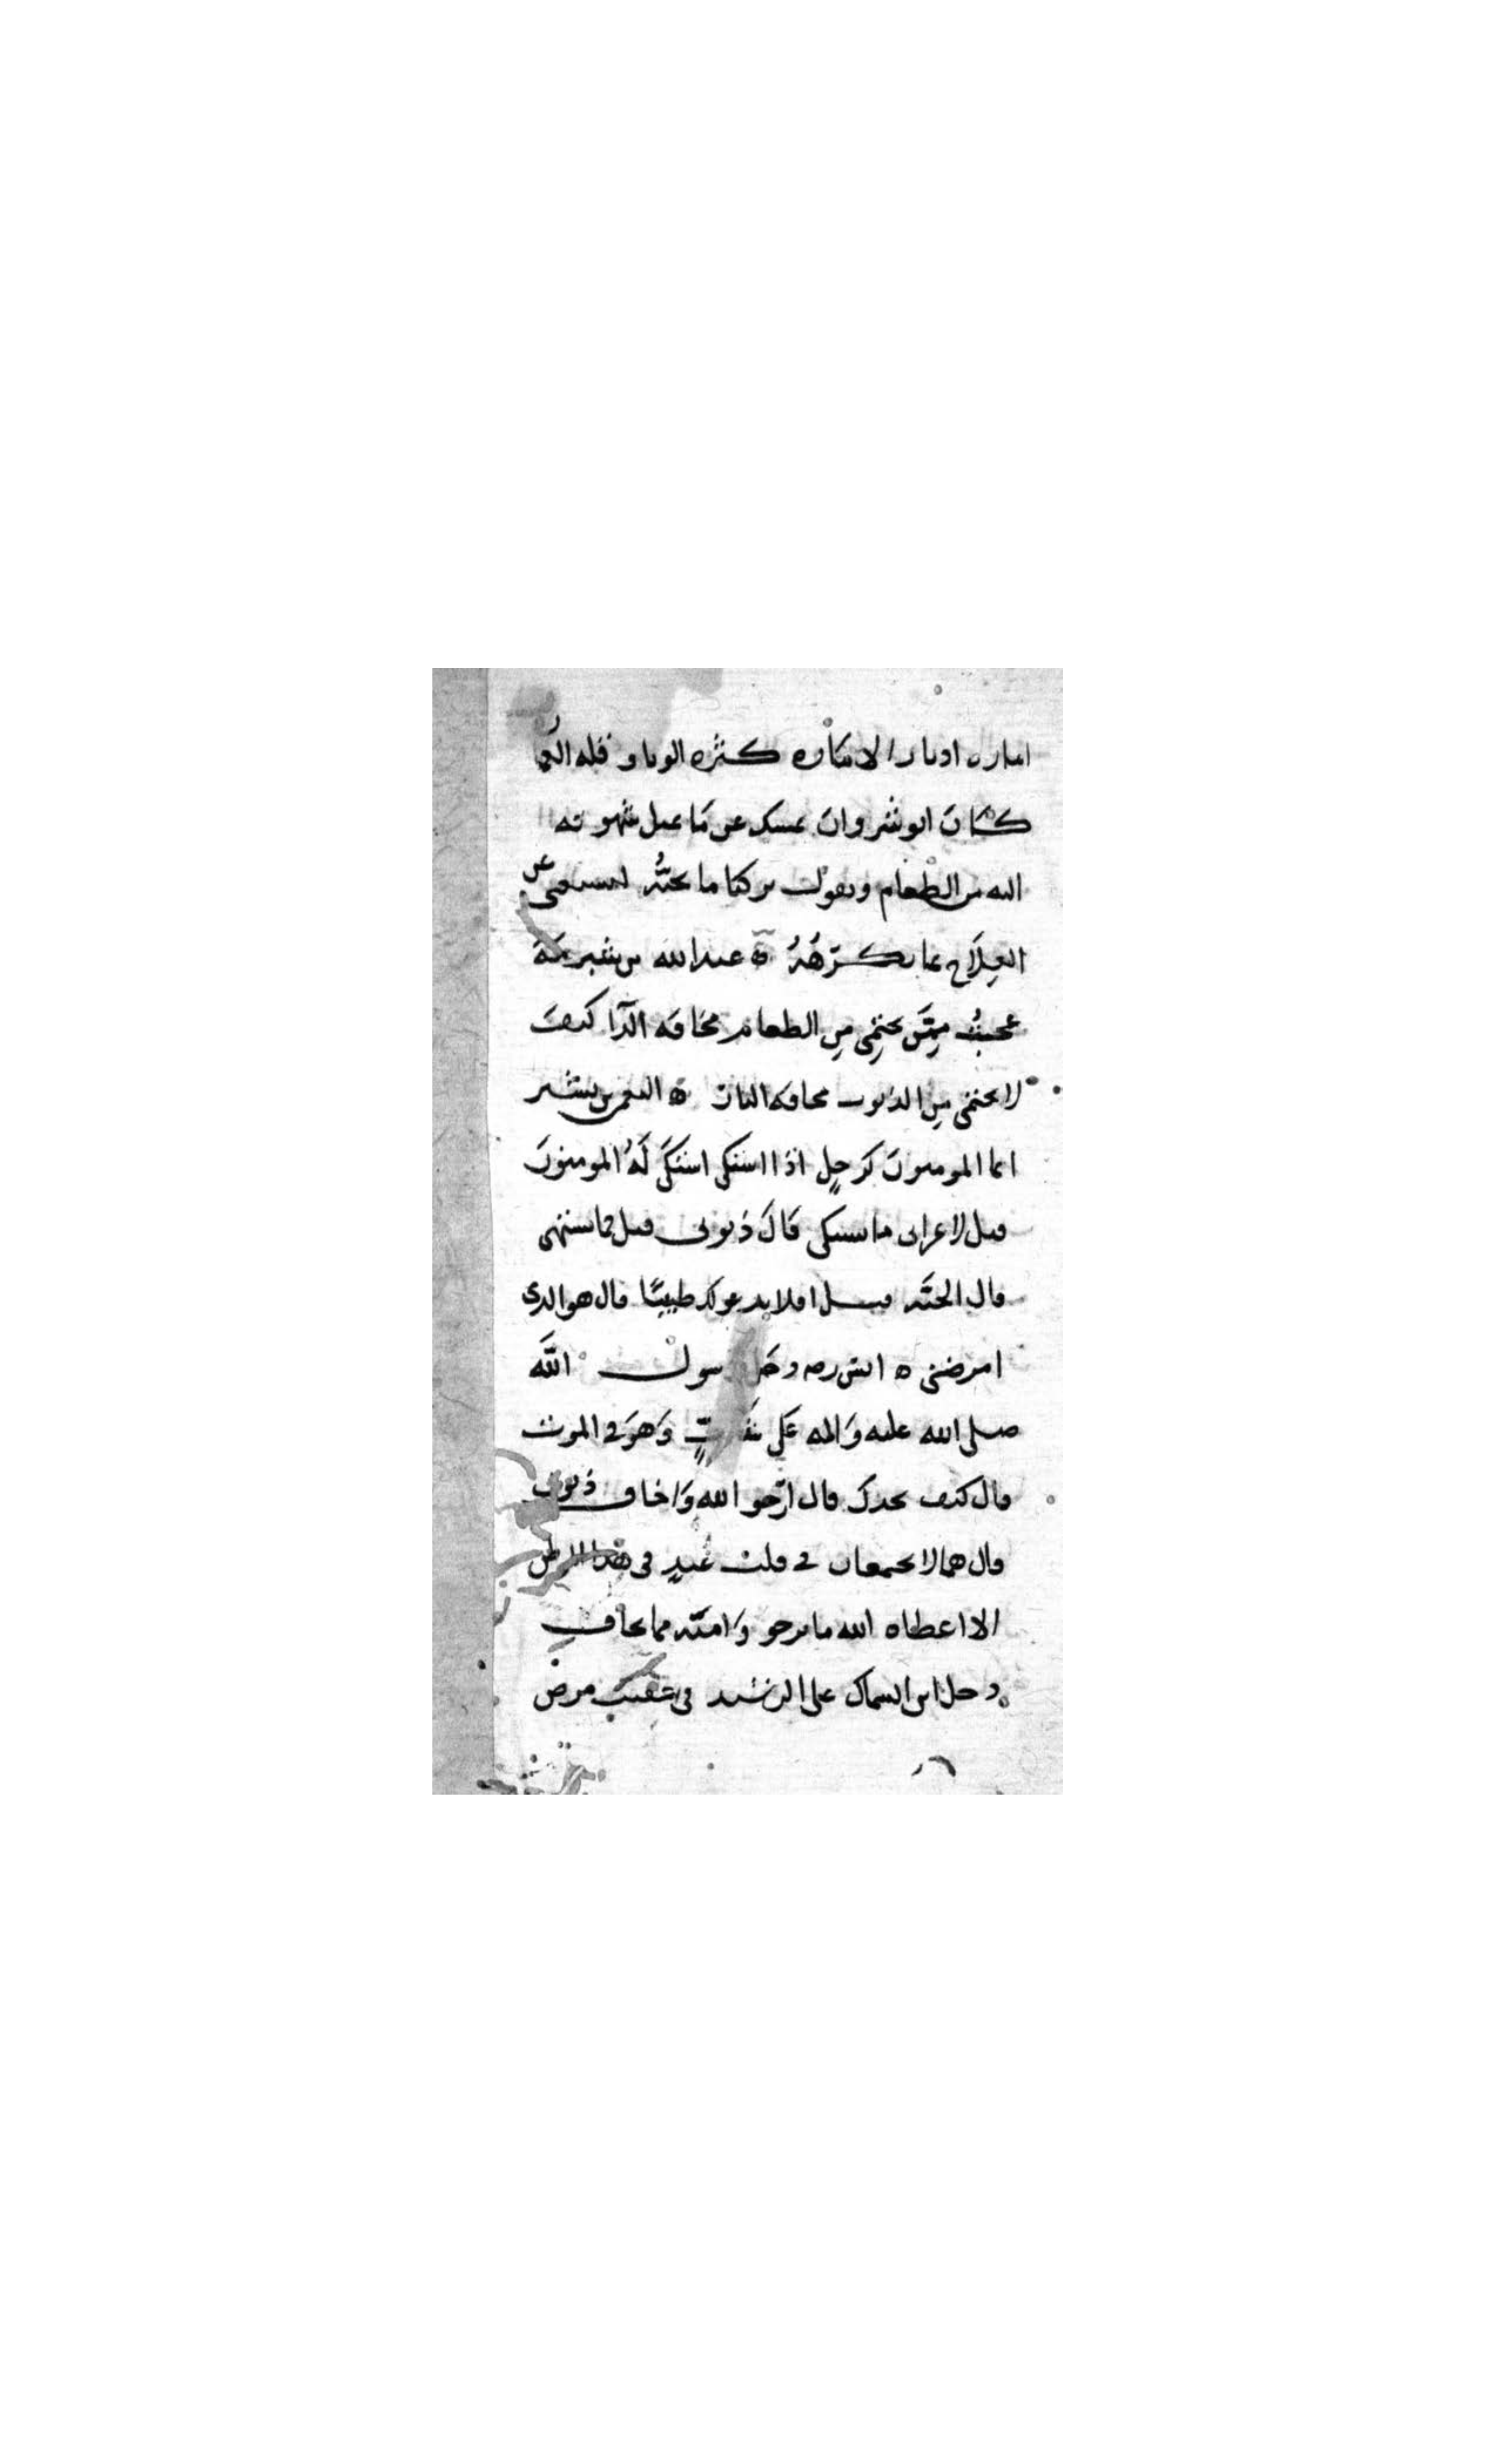 امارة ادبار الامارة كثرة الوباء وقلة
كان انوشروان يمسك عن ما تميل شهوته
اليه من الطعام ويقول تركنا ما نحبه لنستغني عن
العلاج بما نكرهه ه عبد الله بن شبرمة
عجبت ممن يحتمي من الطعام مخافة الدآ كيف
لا يحتمي من الذنوب مخافة النار ه النعمن بن بشير
انما المومنون كرجل اذا اشتكى اشتكى له المومنون
قيل لاعرابي ما تشتكي قال ذنوبي قيل فما تشتهي
قال الجنة قيل افلا يدعو لك طبيبًا قال هو الذي
امرضني ه انس رضه دخل رسول الله
صلى الله عليه واله على وهو في الموت
قال كيف تجدك قال ارجو الله واخاف ذنوبي
قال هما لا يجتمعان في قلب عبد في هذا الموطن
الا اعطاه الله ما يرجو وامنه مما يخاف
دخل ابن السماك على الرشيد في عقيب مرض